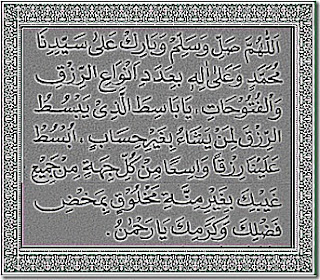 اَللّٰهُمَّ صَلِّ وَسَلِّمْ وَبَارِكْ عَلَى سَيِّدِنَا
مُحَمَّدٍ وَعَلَى اٰلِهِ بِعَدَدِ اَنْوَاعِ الرِّزْقِ
وَالْفُتُوحَاتِ ، يَا بَاسِطَ الَّذِيْ يَبْسُطُ
الرِّزْقَ لِمَنْ يَشَاءُ بِغَيْرِ حِسَابٍ ، اُبْسُطْ
عَلَيْنَا رِزْقًا وَاسِعًا مِنْ كُلِّ جِهَةٍ مِنْ جَمِيْعِ
غَيْبِكَ بِغَيْرِ مِنَّةِ مَخْلُوْقٍ بِمَحْضِ
فَضْلِكَ وَكَرَمِكَ يَا رَحْمٰنُ .